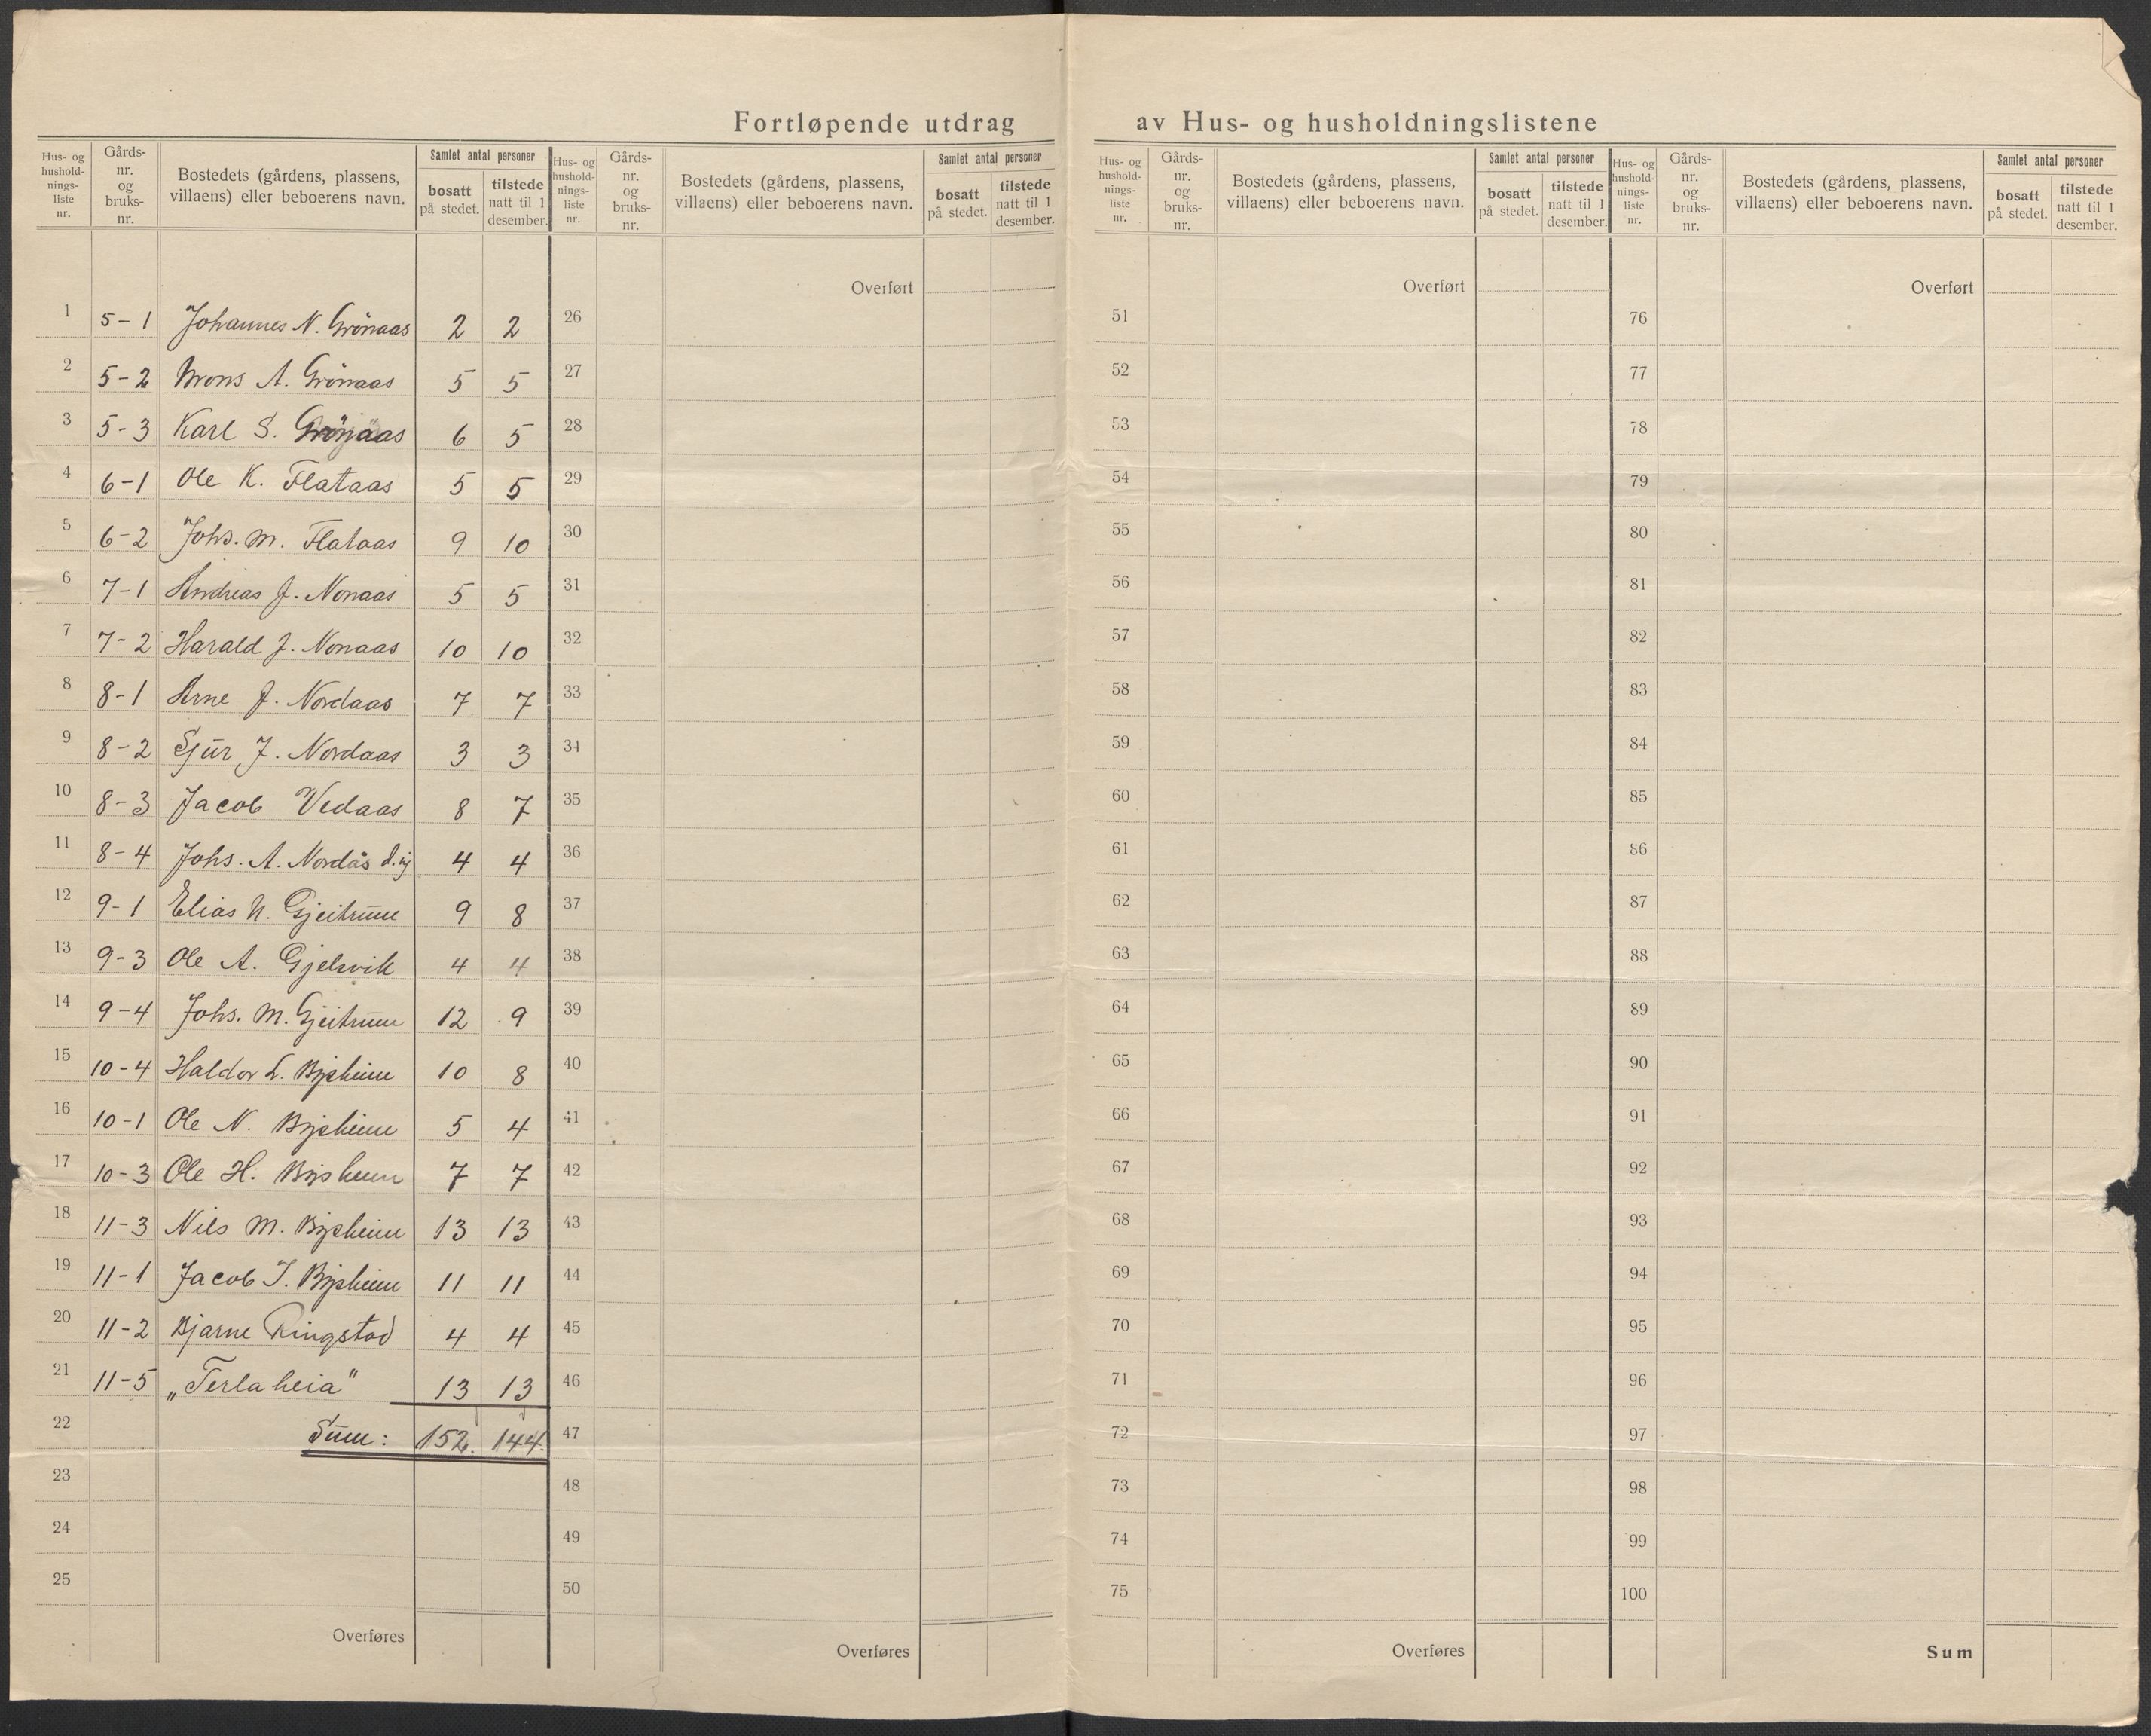 Fortløpende utdrag av Hus- og husholdningslistene
Hus- og hushold-nings-liste nr. Gårds-nr. og bruks-nr. Bostedets (gårdens, plassens, villaens) eller beboerens navn. Samlet antal personer bosatt på stedet. tilstede natt til 1 desember.
Hus- og hushold-nings-liste nr. Gårds-nr. og bruks-nr. Bostedets (gårdens, plassens, villaens) eller beboerens navn. Samlet antal personer bosatt på stedet. tilstede natt til 1 desember.
Hus- og hushold-nings-liste nr. Gårds-nr. og bruks-nr. Bostedets (gårdens, plassens, villaens) eller beboerens navn. Samlet antal personer bosatt på stedet. tilstede natt til 1 desember.
Hus- og hushold-nings-liste nr. Gårds-nr. og bruks-nr. Bostedets (gårdens, plassens, villaens) eller beboerens navn. Samlet antal personer bosatt på stedet. tilstede natt til 1 desember.
Overført Overført Overført
1 5-1 Johannes N. Grönaas 2 2 26 51 76
2 5-2 Mons A. Grönaas 5 5 27 52 77
3 5-3 Karl S. Grönaas 6 5 28 53 78
4 6-1 Ole K. Flataas 5 5 29 54 79
5 6-2 Johs. M. Flataas 9 10 30 55 80
6 7-1 Andreas J. Nonaas 5 5 31 56 81
7 7-2 Harald J. Nonaas 10 10 32 57 82
8 8-1 Arne J. Nordaas 7 7 33 58 83
9 8-2 Sjur J. Nordaas 3 3 34 59 84
10 8-3 Jacob Vedaas 8 7 35 60 85
11 8-4 Johs. A. Nordås d. y 4 4 36 61 86
12 9-1 Elias N. Gjeitrum 9 8 37 62 87
13 9-3 Ole A. Gjelsvik 4 4 38 63 88
14 9-4 Johs. M. Gjeitrum 12 9 39 64 89
15 10-4 Haldor L. Bysheim 10 8 40 65 90
16 10-1 Ole N. Bysheim 5 4 41 66 91
17 10-3 Ole H. Bysheim 7 7 42 67 92
18 11-3 Nils M. Bysheim 13 13 43 68 93
19 11-1 Jacob I. Bysheim 11 11 44 69 94
20 11-2 Bjarne Ringstad 4 4 45 70 95
21 11-5 „Terlaheia" 13 13 46 71 96
22 Sum: 152. 144. 47 72 97
23 48 73 98
24 49 74 99
25 50 75 100
Overføres Overføres Overføres Sum